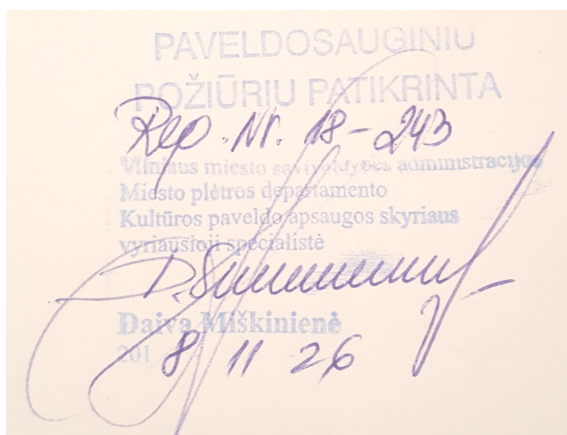 PAVELDOSAUGINIU
POŽIŪRIU PATIKRINTA
Rep. Nr. 18-243
Vilniaus miesto savivaldybės administracijos
Miesto plėtros departamento
Kultūros paveldo apsaugos skyriaus
vyriausioji specialistė
Daiva Miškinienė
2018 11 26